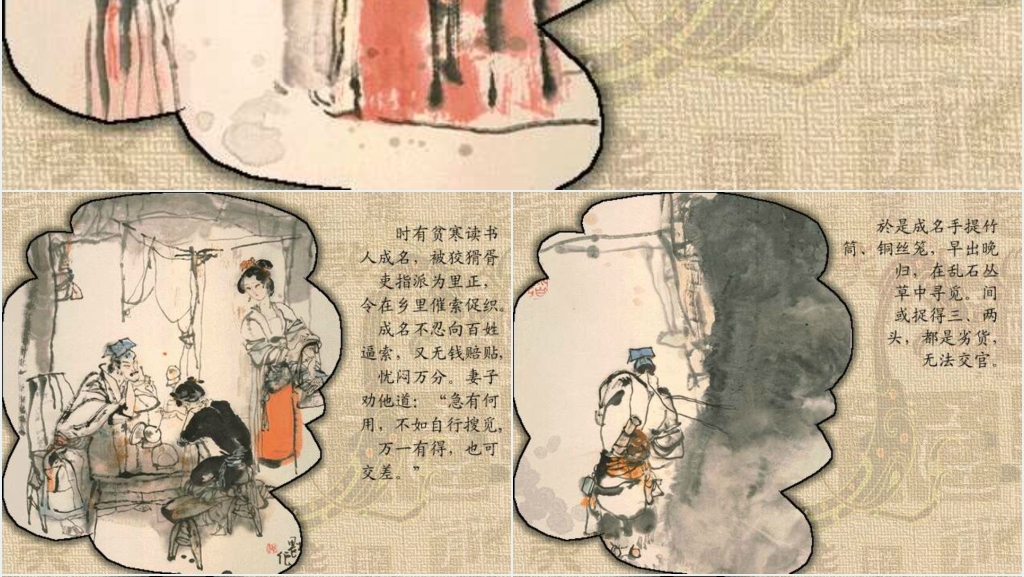 时有贫寒读书
人成名，被狡猾胥
吏指派为里正，
令在乡里催索促织。
成名不忍向百姓
逼索，又无钱赔贴，
忧闷万分。妻子
劝他道：“急有何
用，不如自行搜觅，
万一有得，也可
交差。”
於是成名手提竹
筒、铜丝笼，早出晚
归，在乱石丛
草中寻觅。间
或捉得三、两
头，都是劣货，
无法交官。